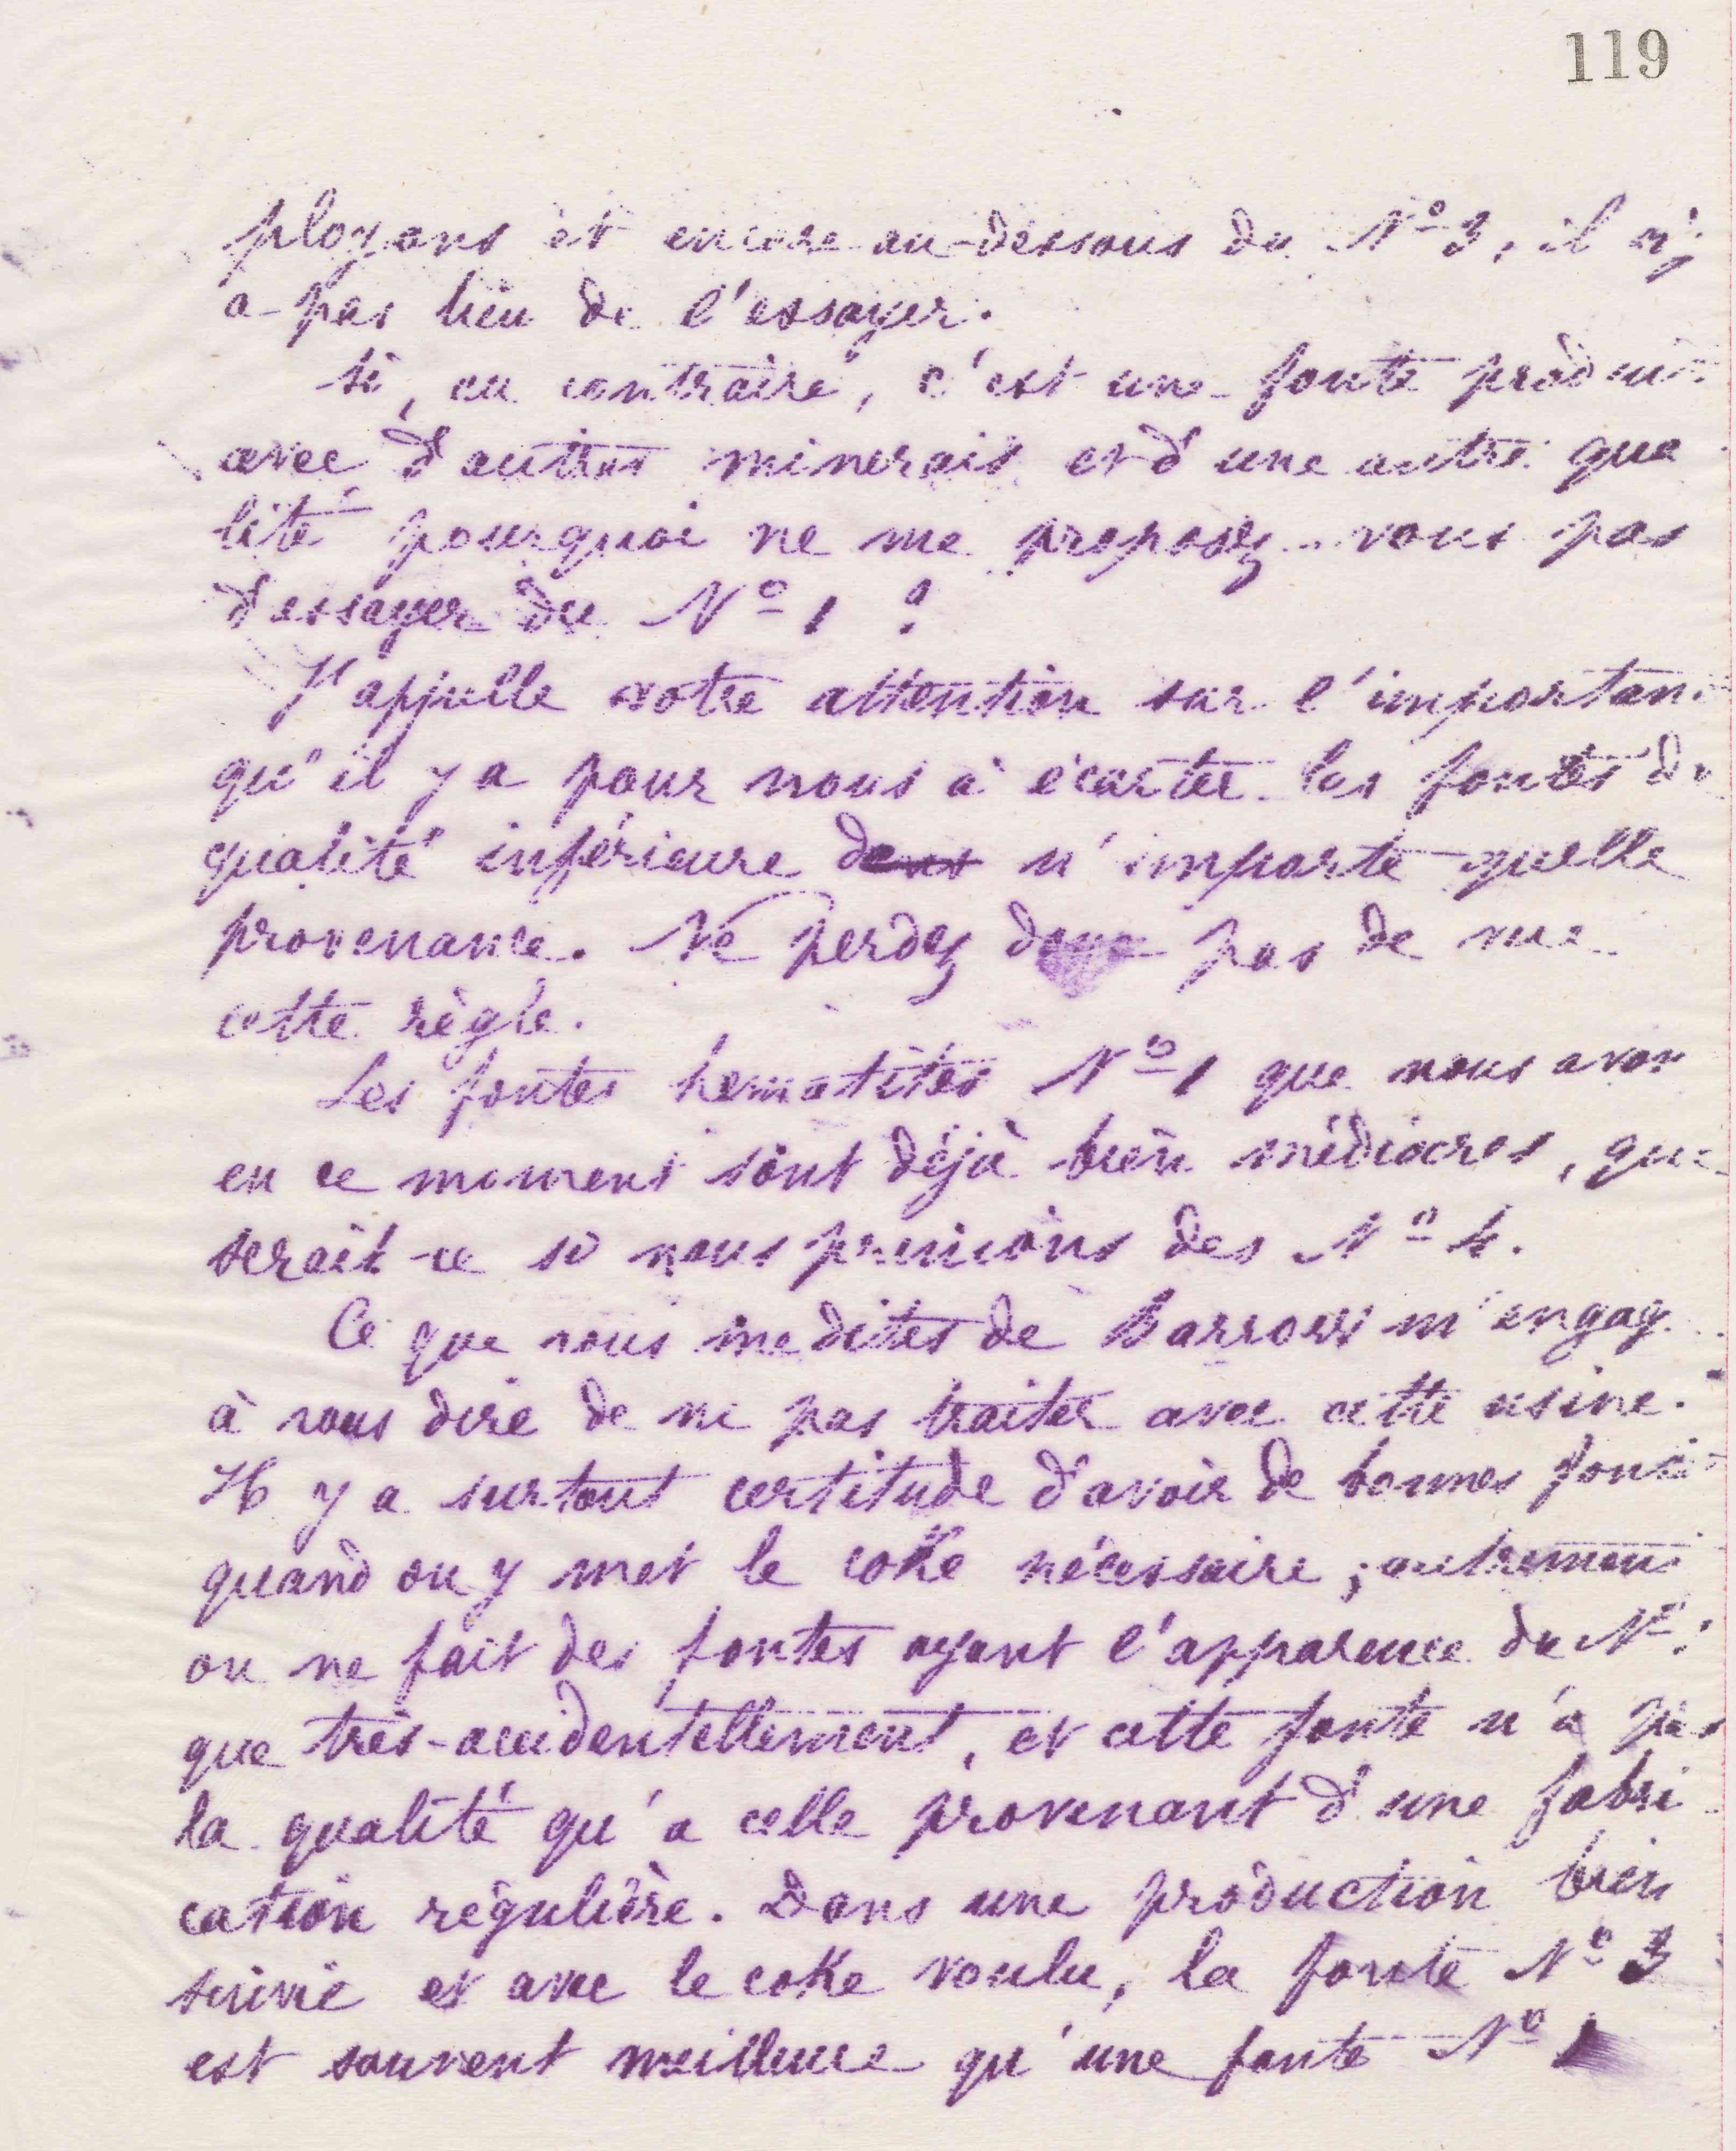 119
ployons et encore au-dessous du N° 3, il n'y
a pas lieu de l'essayer.
Si, au contraire, c'est une fonte produi
avec d'autres minerais et d'une autre qua
lité pourquoi ne me proposez-vous pas
d'essayer du N° 1 ?
J'appelle votre attention sur l'importan
qu'il y a pour nous à écarter les fontes de
qualité inférieure de n'importe quelle
provenance. Ne perdez donc pas de vue
cette règle.
Les fontes hematites N° 1 que nous avon
en ce moment sont déjà bien médiocres, que
serait-ce si nous prenions des N° 4.
Ce que vous me dites de Barrow m'engag
à vous dire de ne pas traiter avec cette usine.
Il y a surtout certitude d'avoir de bonnes font
quand on y met le coke nécessaire ; autrement
on ne fait des fontes ayant l'apparence du N°
que très-accidentellement, et cette fonte n'a pas
la qualité qu'a celle provenant d'une fabri
cation régulière. Dans une production bien
suivie et avec le coke voulu, la fonte N° 3
est souvent meilleure qu'une fonte N° 1